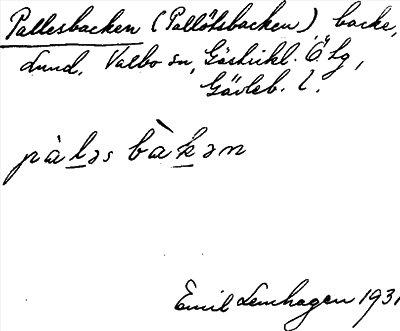 Pallesbacken (Pallötsbacken), backe,
Lund, Valbo sn, Gästrikl. Ö. tg,
Gävleb. l.
pàləs bàkən
Emil Lenhagen 1931